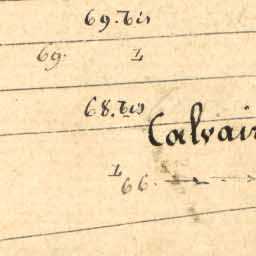 69.bis
69. L
68.bis
Calvair
L 66.